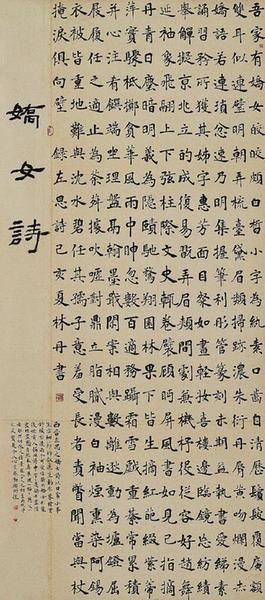 吾家有嬌女皎皎頗白皙小字為紈素口齒自清歷鬢髮覆廣額
雙耳似連璧明朝弄梳臺黛眉類掃跡濃朱衍丹唇黃吻瀾漫赤
嬌語若連瑣忿速乃明集握筆利彤管篆刻未期益執書愛綈素
誦習矜所獲其姊字惠芳面目粲如畫輕妝喜樓邊臨鏡忘紡績
舉觶擬京兆立的成復易玩弄眉頰間劇兼機杼役從容好趙舞
延袖象飛翮上下弦柱際文史輒卷襞顧眄屏風畫如見已指摘
丹青日塵暗明義為隱賾馳騖翔園林果下皆生摘紅葩綴紫蒂
萍實驟柢擲貪華風雨中倏忽數百適務躡霜雪戲重綦常累積
并心注肴饌端坐理盤槅翰墨戢閑案相與數離逖動為壚鉦屈
屐履任之適止為荼菽據吹噓對鼎立脂膩漫白袖煙熏染阿錫
衣被皆重地難與沉水碧任其孺子意羞受長者責瞥聞當與杖
掩淚俱向壁 錄左思詩己亥夏林丹書
嬌女詩